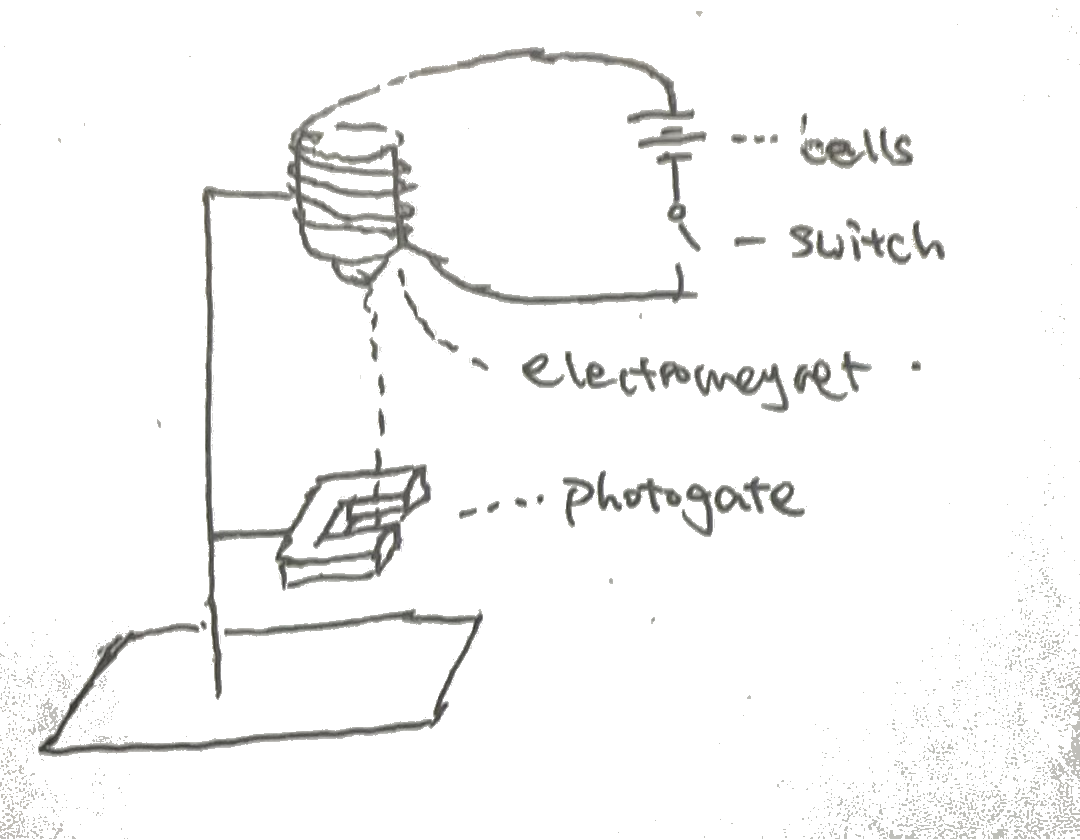 cells
switch
electromagnet
photogate